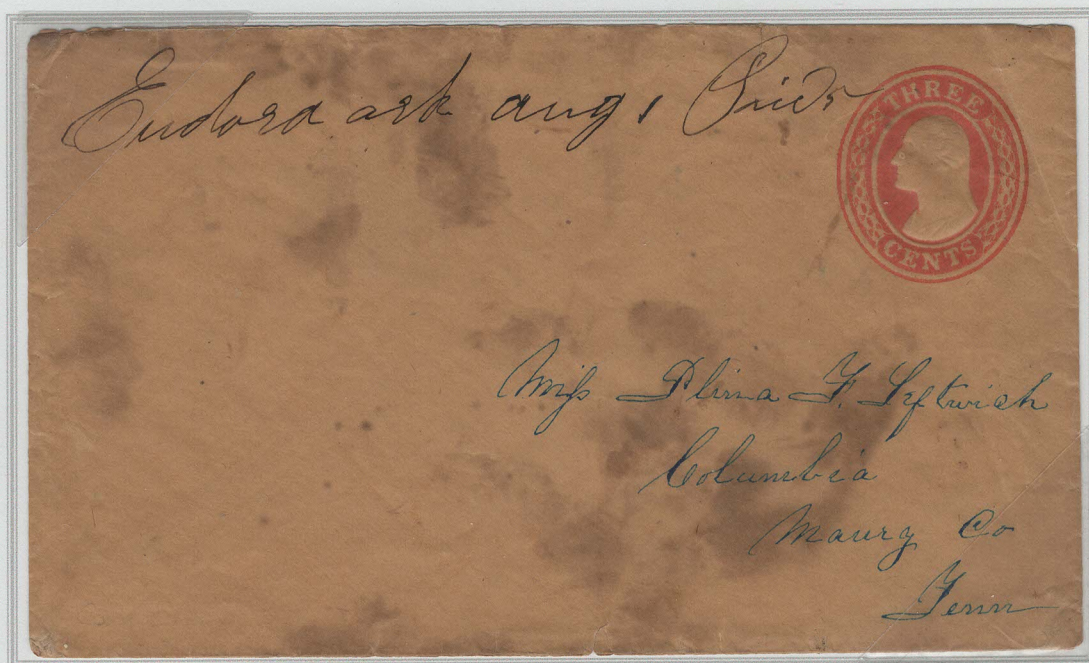 Eudora ark aug 1 Paid
THREE
CENTS
Miss Plina F. Leftwich
Columbia
Maury Co
Tenn